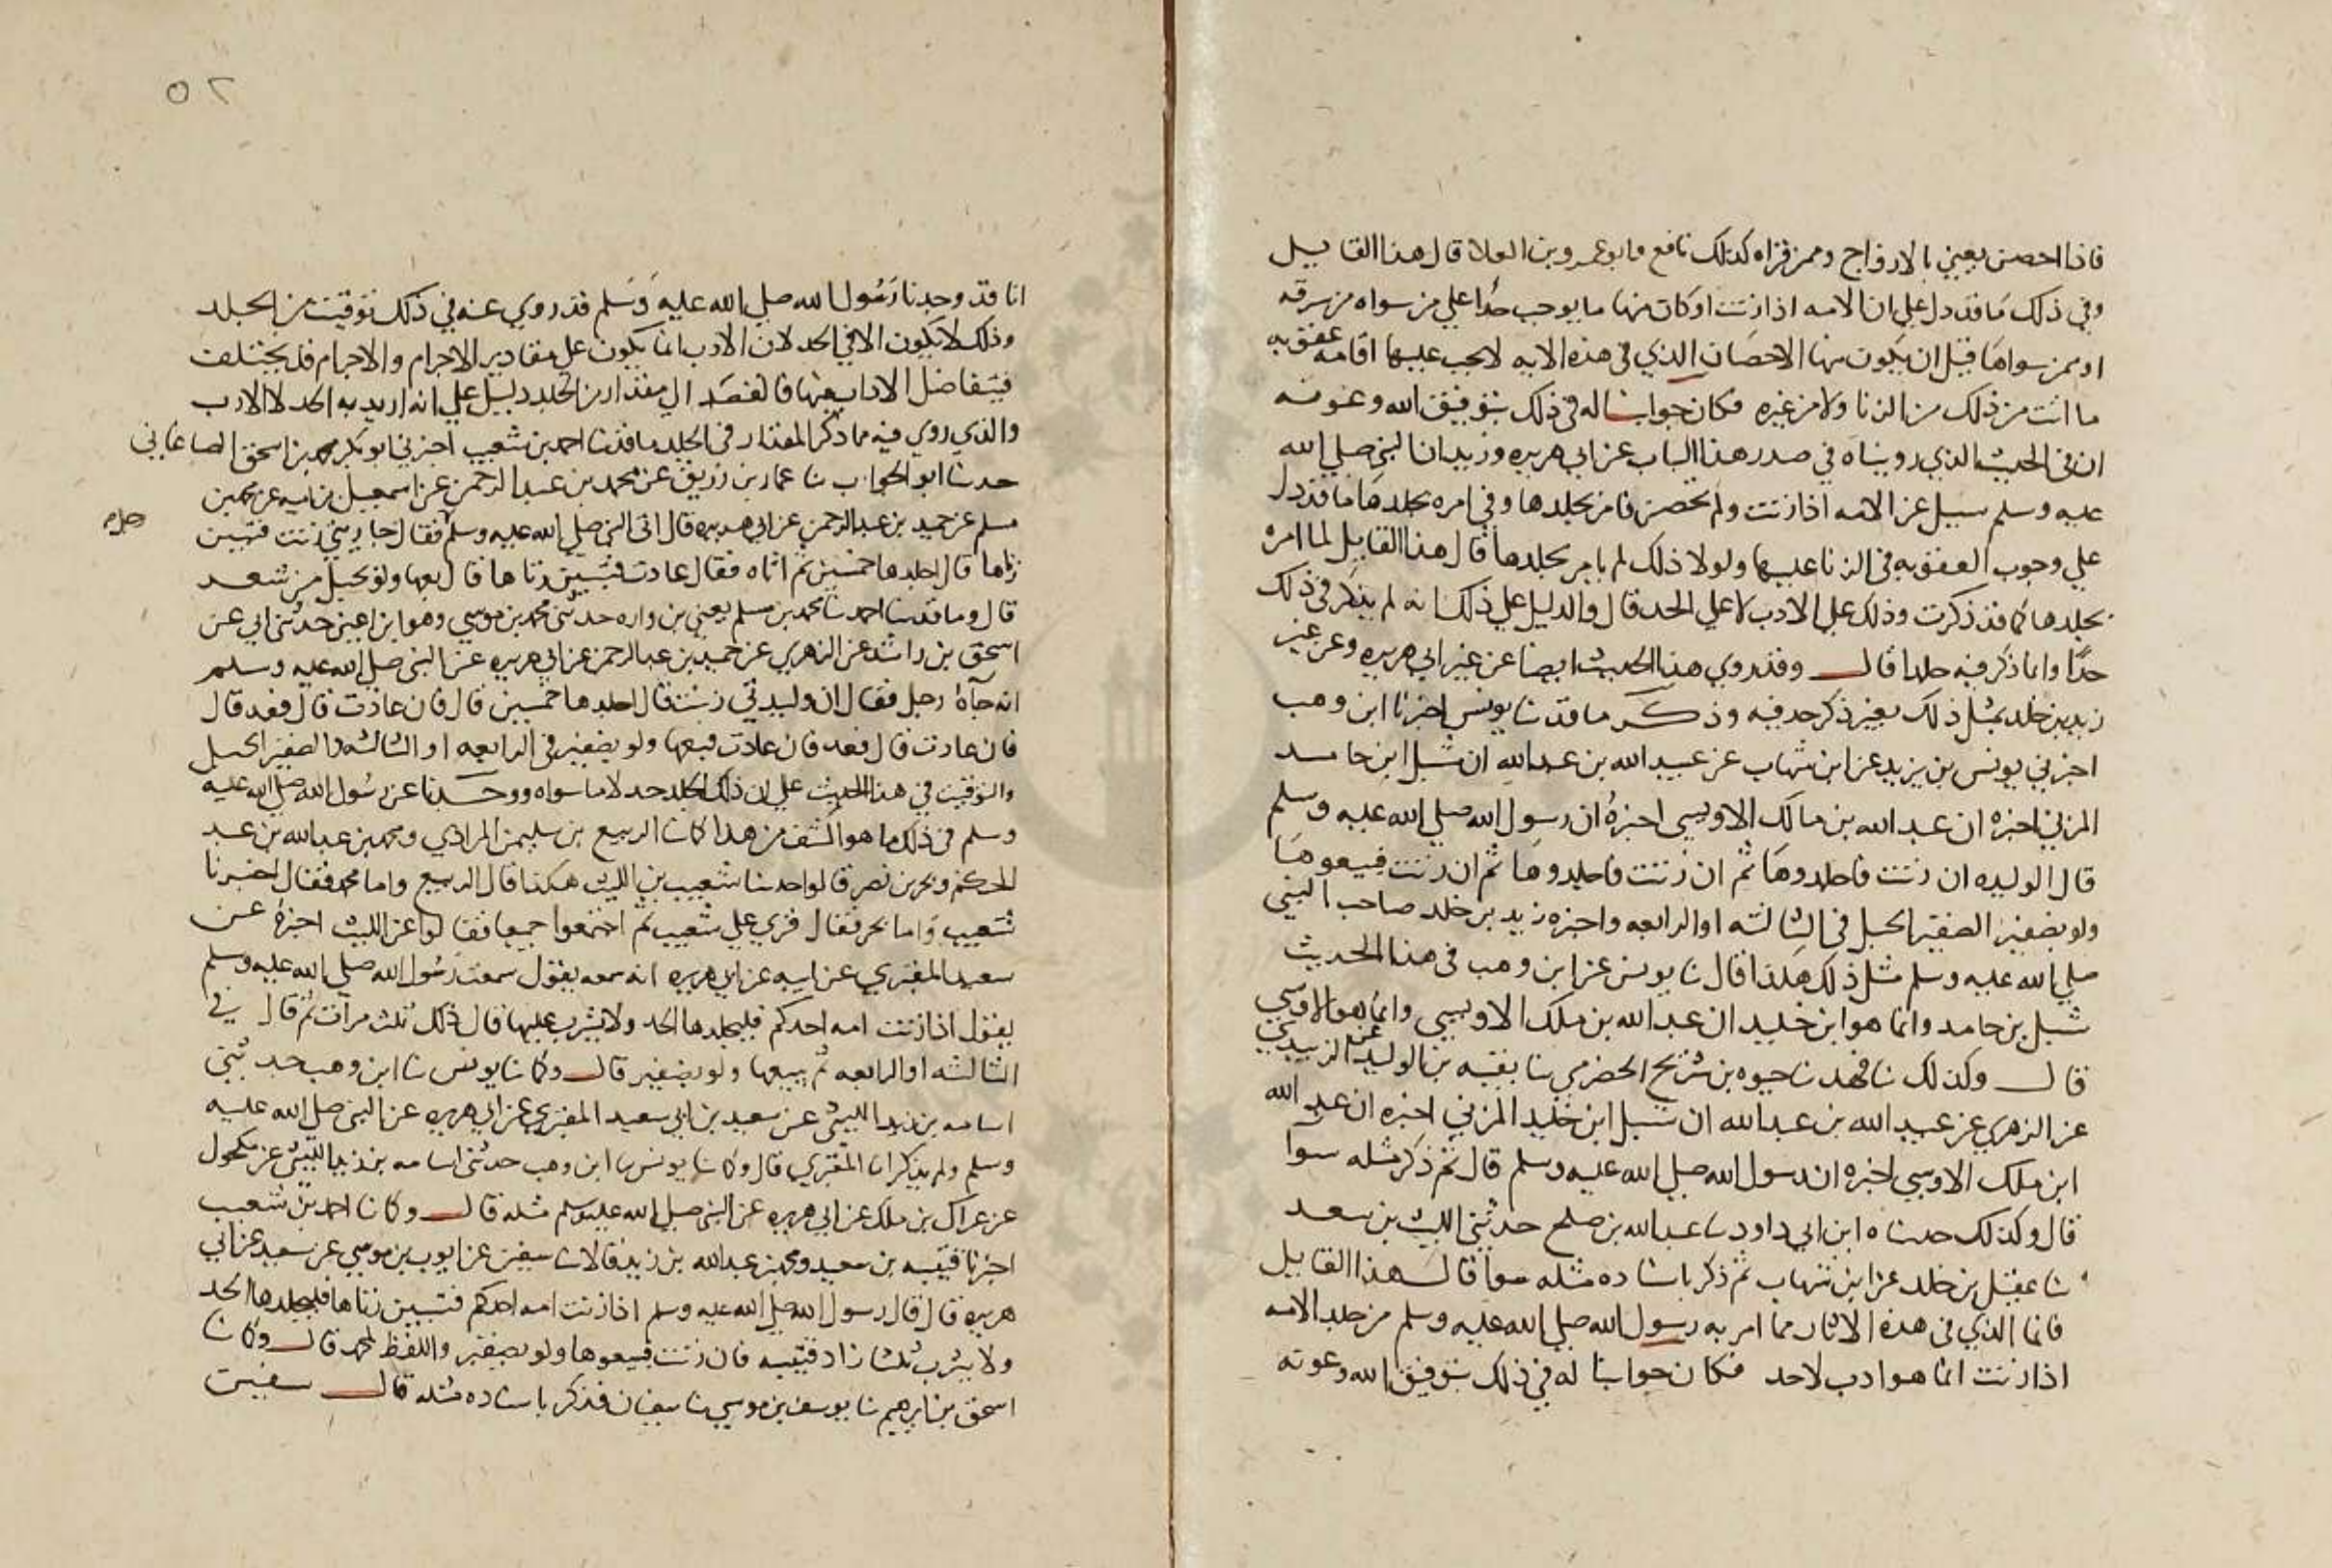 فاذا احصن يعني بالازواج وممن قراه كذلك نافع وابو عمرو بن العلا قال هذا القايل
وفي ذلك ما قد دل علي ان الامه اذا زنت او كان منها ما يوجب حدا علي من سواه من سرقه
او من سواها قبل ان يكون منها الاحصان الذي في هذه الايه لا يجب عليها اقامه عقوبه
ما اتت من ذلك من الزنا ولا من غيره فكان جوابنا له في ذلك بتوفيق الله وعونه
ان في الحديث الذي رويناه في صدر هذا الباب عن ابي هريره وزيد ان النبي صلي الله
عليه وسلم سيل عن الامه اذا زنت ولم تحصن فامر بجلدها وفي امره بجلدها ما قد دل
علي وجوب العقوبه في الزنا عليها ولولا ذلك لم يامر بجلدها قال هذا القايل لما امره
بجلدها كما قد ذكرت وذلك علي الادب لا علي الحد قال والدليل علي ذلك انه لم يذكر في ذلك
حدا وانما ذكر فيه جلدا قال وقد روي هذا الحديث ايضا عن غير ابي هريره وعن غير
زيد بن خلد بمثل ذلك بغير ذكر حد فيه وذكر ما قد نا يونس اخبرنا ابن وهب
اخبرني يونس بن يزيد عن ابن شهاب عن عبيد الله بن عبد الله ان شبل ابن حامد
المزني اخبره ان عبد الله بن مالك الاويسي اخبره ان رسول الله صلي الله عليه وسلم
قال الوليده ان زنت فاجلدوها ثم ان زنت فاجلدوها ثم ان زنت فبيعوها
ولو بضفير الضفير الحبل في الثالثه او الرابعه واخبره زيد بن خلد صاحب النبي
صلي الله عليه وسلم مثل ذلك هكذا قال نا يونس عن ابن وهب في هذا الحديث
شبل بن حامد وانما هو ابن خليد ان عبد الله بن ملك الاويسي وانما هو الاوسي
قال وكذلك نا فهد نا حيوه بن شريح الحضرمي نا بقيه بن الوليد عن الزبيدي
عن الزهري عن عبيد الله بن عبد الله ان شبل ابن خليد المزني اخبره ان عبد الله
ابن ملك الاوسي اخبره ان رسول الله صلي الله عليه وسلم قال ثم ذكر مثله سوا
قال وكذلك حدثناه ابن ابي داود نا عبد الله بن صلح حدثني الليث بن سعد
نا عقيل بن خلد عن ابن شهاب ثم ذكر باسناده مثله سوا قال هذا القايل
فانما الذي في هذه الاثار مما امر به رسول الله صلي الله عليه وسلم من جلد الامه
اذا زنت انما هو ادب لا حد فكان جوابنا له في ذلك بتوفيق الله وعونه
٥٢
انا قد وجدنا رسول الله صلي الله عليه وسلم قد روي عنه في ذلك توقيت من الجلد
وذلك لا يكون الا في الحد لان الادب انما يكون علي مقادير الاجرام والاجرام قد يختلف
فيتفاضل الاداب فيها فالقصد الي مقدار من الجلد دليل علي انه اريد به الحد لا الادب
والذي روي فيه مما ذكر المقدار في الجلد ما قد نا احمد بن شعيب اخبرني ابو بكر محمد بن اسحق الصاغاني
حدثنا ابو الجواب نا عمار بن زريق عن محمد بن عبد الرحمن عن اسمعيل بن اميه عن محمد بن
مسلم عن حميد بن عبد الرحمن عن ابي هريره قال اتي النبي صلي الله عليه وسلم فقال جاريتي زنت فتبين
رجل
زناها قال اجلدها خمسين ثم اتاه فقال عادت فتبين زناها قال بعها ولو بحبل من شعر
قال وما قد نا احمد نا محمد بن مسلم يعني بن واره حدثني محمد بن موسي وهو ابن اعين حدثني ابي عن
اسحق بن راشد عن الزهري عن حميد بن عبد الرحمن عن ابي هريره عن النبي صلي الله عليه وسلم
انه جاه رجل فقال ان وليدتي زنت قال اجلدها خمسين قال فان عادت قال فعد قال
فان عادت قال فعد فان عادت فبعها ولو بضفير في الرابعه او الثالثه والضفير الحبل
والتوقيت في هذا الحديث علي ان ذلك الجلد حد لا ما سواه ووجدنا عن رسول الله صلي الله عليه
وسلم في ذلك ما هو اكشف من هذا كما نا الربيع بن سليمن المرادي ومحمد بن عبد الله بن عبد
الحكم وبحر بن نصر قالوا حدثنا شعيب بن الليث هكذا قال الربيع واما محمد فقال اخبرنا
شعيب واما بحر فقال قري علي شعيب ثم اجتمعوا جميعا فقالوا عن الليث اخبره عن
سعيد المقبري عن ابيه عن ابي هريره انه سمعه يقول سمعت رسول الله صلي الله عليه وسلم
يقول اذا زنت امه احدكم فليجلدها الحد ولا يثرب عليها قال ذلك ثلث مرات ثم قال في
الثالثه او الرابعه ثم يبيعها ولو بضفير قال وكما نا يونس نا ابن وهب حدثني
اسامه بن زيد الليثي عن سعيد بن ابي سعيد المقبري عن ابي هريره عن النبي صلي الله عليه
وسلم ولم يذكر ابا المقبري قال وكما نا يونس نا ابن وهب حدثني اسامه بن زيد الليثي عن مكحول
عن عراك بن ملك عن ابي هريره عن النبي صلي الله عليه وسلم مثله قال وكما نا احمد بن شعيب
اخبرنا قتيبه بن سعيد ومحمد بن عبد الله بن زيد قالا نا سفين عن ايوب بن موسي عن سعيد عن ابي
هريره قال قال رسول الله صلي الله عليه وسلم اذا زنت امه احدكم فتبين زناها فليجلدها الحد
ولا يثرب ثلثا زاد قتيبه فان زنت فبيعوها ولو بضفير واللفظ لمحمد قال وكما نا
اسحق بن ابرهيم نا يوسف بن موسي نا سفيان فذكر باسناده مثله قال سفين